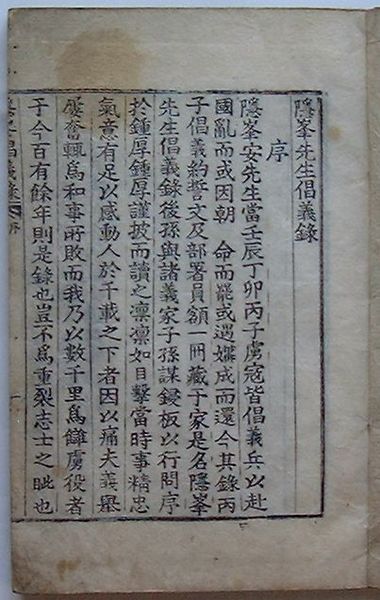 隱峯先生倡義錄
序
隱峯安先生當壬辰丁卯丙子虜寇皆倡義兵以赴
國亂而或因朝 命而罷或遇媾成而還今其錄丙
子倡義約誓文及部署員額一冊藏于家是名隱峯
先生倡義錄後孫與諸義家子孫謀鋟板以行問序
於鍾厚鍾厚謹披而讀之凛凛如目擊當時事精忠
氣意有足以感動人於千載之下者因以痛夫義擧
屢奮輒爲和事所敗而我乃以數千里爲讎虜役者
于今百有餘年則是錄也豈不爲重裂志士之眦也